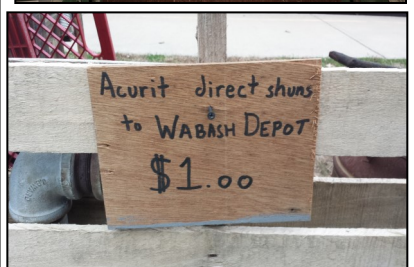 Acurit direct shuns
to WABASH DEPOT
$1.00